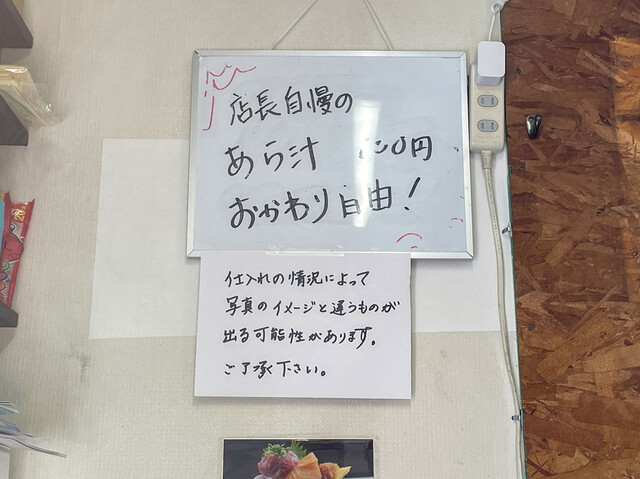 店長自慢の
あら汁 円
おかわり自由!
仕入れの情況によって
写真のイメージと違うものが
出る可能性があります。
ご了承下さい。